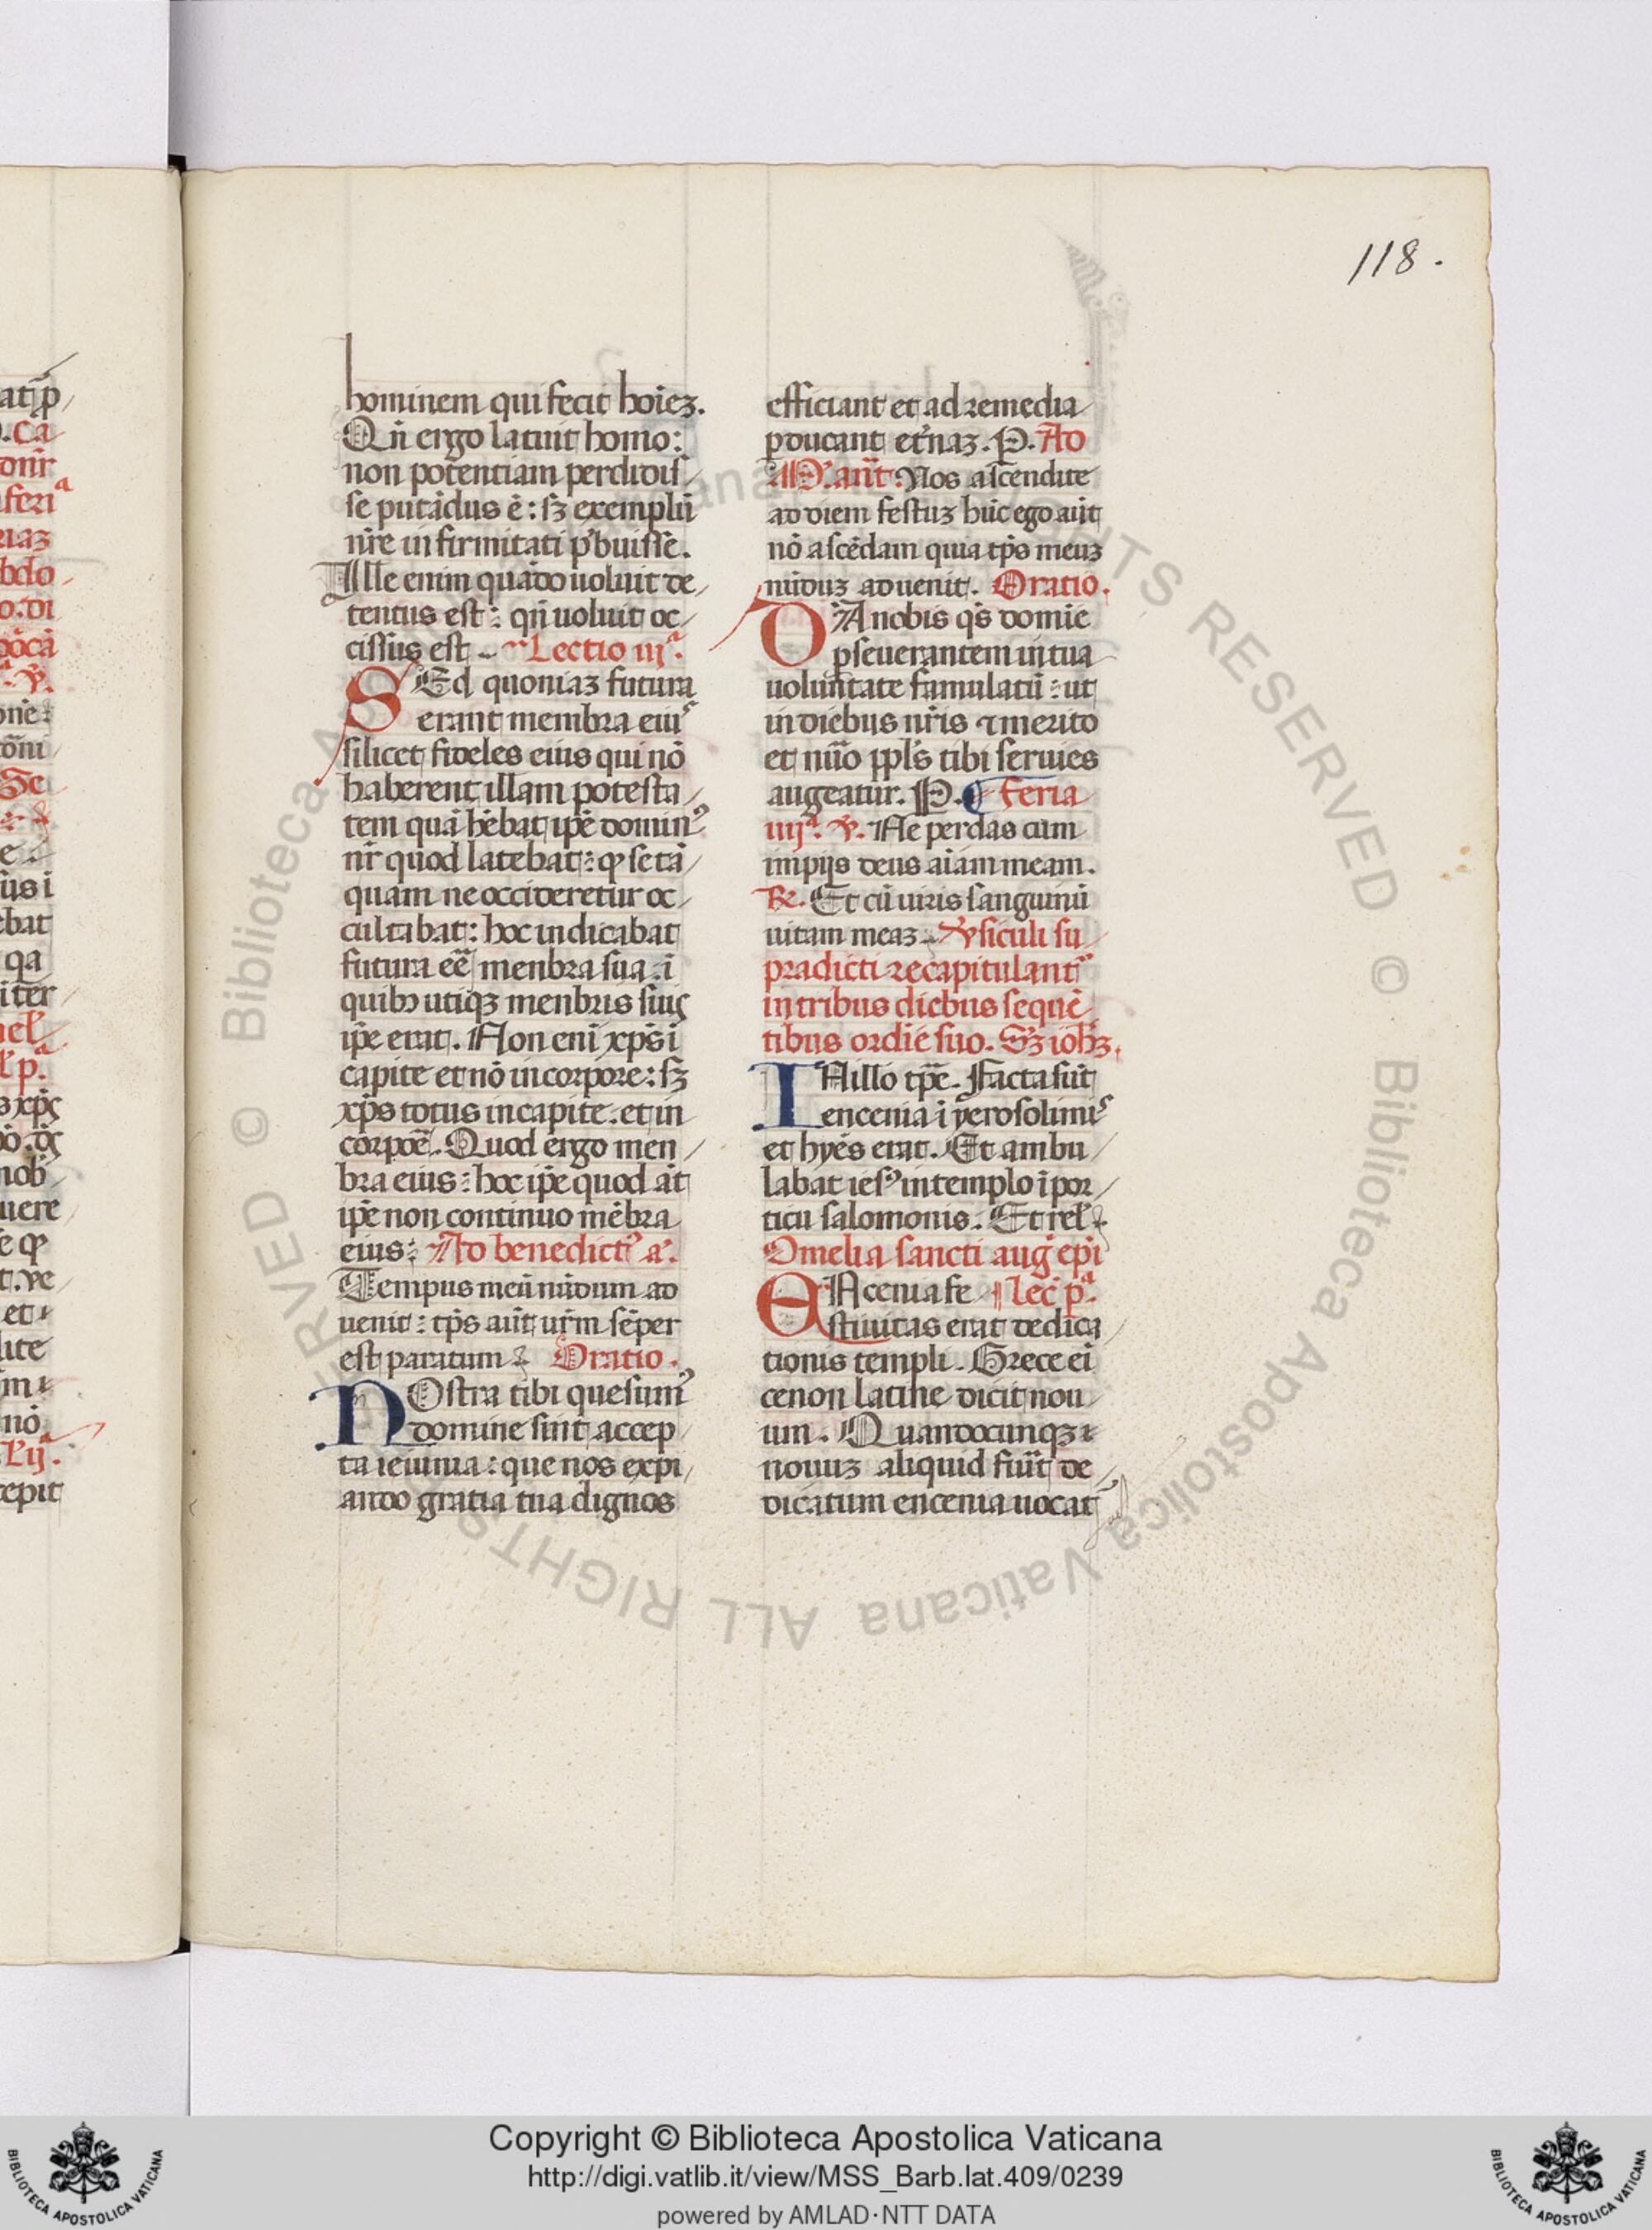 118.
hominem qui fecit hoiēz.
Qn̄ ergo latuit homo:
non potentiam perdidis/
se putādus ē: sꝫ exemplū
nr̄e infirmitati p̄buisse.
Ille enim quādo uoluit de/
tentus est: qn̄ uoluit oc/
cissus est. Lectio iijª.
SEd quoniaꝫ futura
erant membra eius
silicet fideles eius qui nō
haberent illam potesta/
tem quā hēbat ip̄e domin⁹
nr̄ quod latebat: ꝙ se tā/
quam ne occideretur oc/
cultabat: hoc indicabat
futura eē menbra sua. ī
quibꝫ utiqꝫ menbris suis
ip̄e erat. Non enī xp̄s ī
capite et nō in corpore: sꝫ
xp̄s totus in capite. et in
corpoē. Quod ergo men/
bra eius: hoc ip̄e quod āt
ip̄e non continuo mēbra
eius: Ad benedict⁹ aª.
Tempus meū nūdum ad
uenit: tp̄s aūt ur̄m sēper
est paratum. Oratio.
NOstra tibi quesum⁹
domine sint accep/
ta ieiunia: que nos expi/
ando gratia tua dignos
efficiant et ad remedia
ꝑducant et̄naꝫ. P. Ad
M. ant̄. Nos ascendite
ad diem festuꝫ hūc ego aūt
nō ascēdam quia tp̄s meuꝫ
nūduꝫ aduenit. Oratio.
DA nobis qs̄ domīe
ꝑseuerantem in tua
uoluntate famulatū: ut
in diebus nr̄is ⁊ merito
et nūo ppl̄s tibi seruiēs
augeatur. P. Feria
iiijª. ℣. Ne perdas cum
impijs deus aīam meam.
℟. Et cū uiris sanguinū
uitam meaꝫ. ℣siculi su/
pradicti recapitulant⁹
in tribus diebus sequē/
tibus ordīe suo. Sꝫ ioh̄ꝫ.
IN illo tp̄e. Facta sūt
encenia ī yerosolimis
et hyēs erat. Et ambu/
labat ies⁹ in templo ī por/
ticu salomonis. Et rel̄.
Omelia sancti auḡ ep̄i
ENcenia fe lec̄ pª.
stiuitas erat dedica/
tionis templi. Grece eī
cenon latine dicit nou
um. Quandocunqꝫ
nouuꝫ aliquid fūit de/
dicatum encenia uocat⁹
Copyright © Biblioteca Apostolica Vaticana
http://digi.vatlib.it/view/MSS_Barb.lat.409/0239
powered by AMLAD·NTT DATA
BIBLIOTECA APOSTOLICA VATICANA
BIBLIOTECA APOSTOLICA VATICANA
© Biblioteca Apostolica Vaticana ALL RIGHTS RESERVED